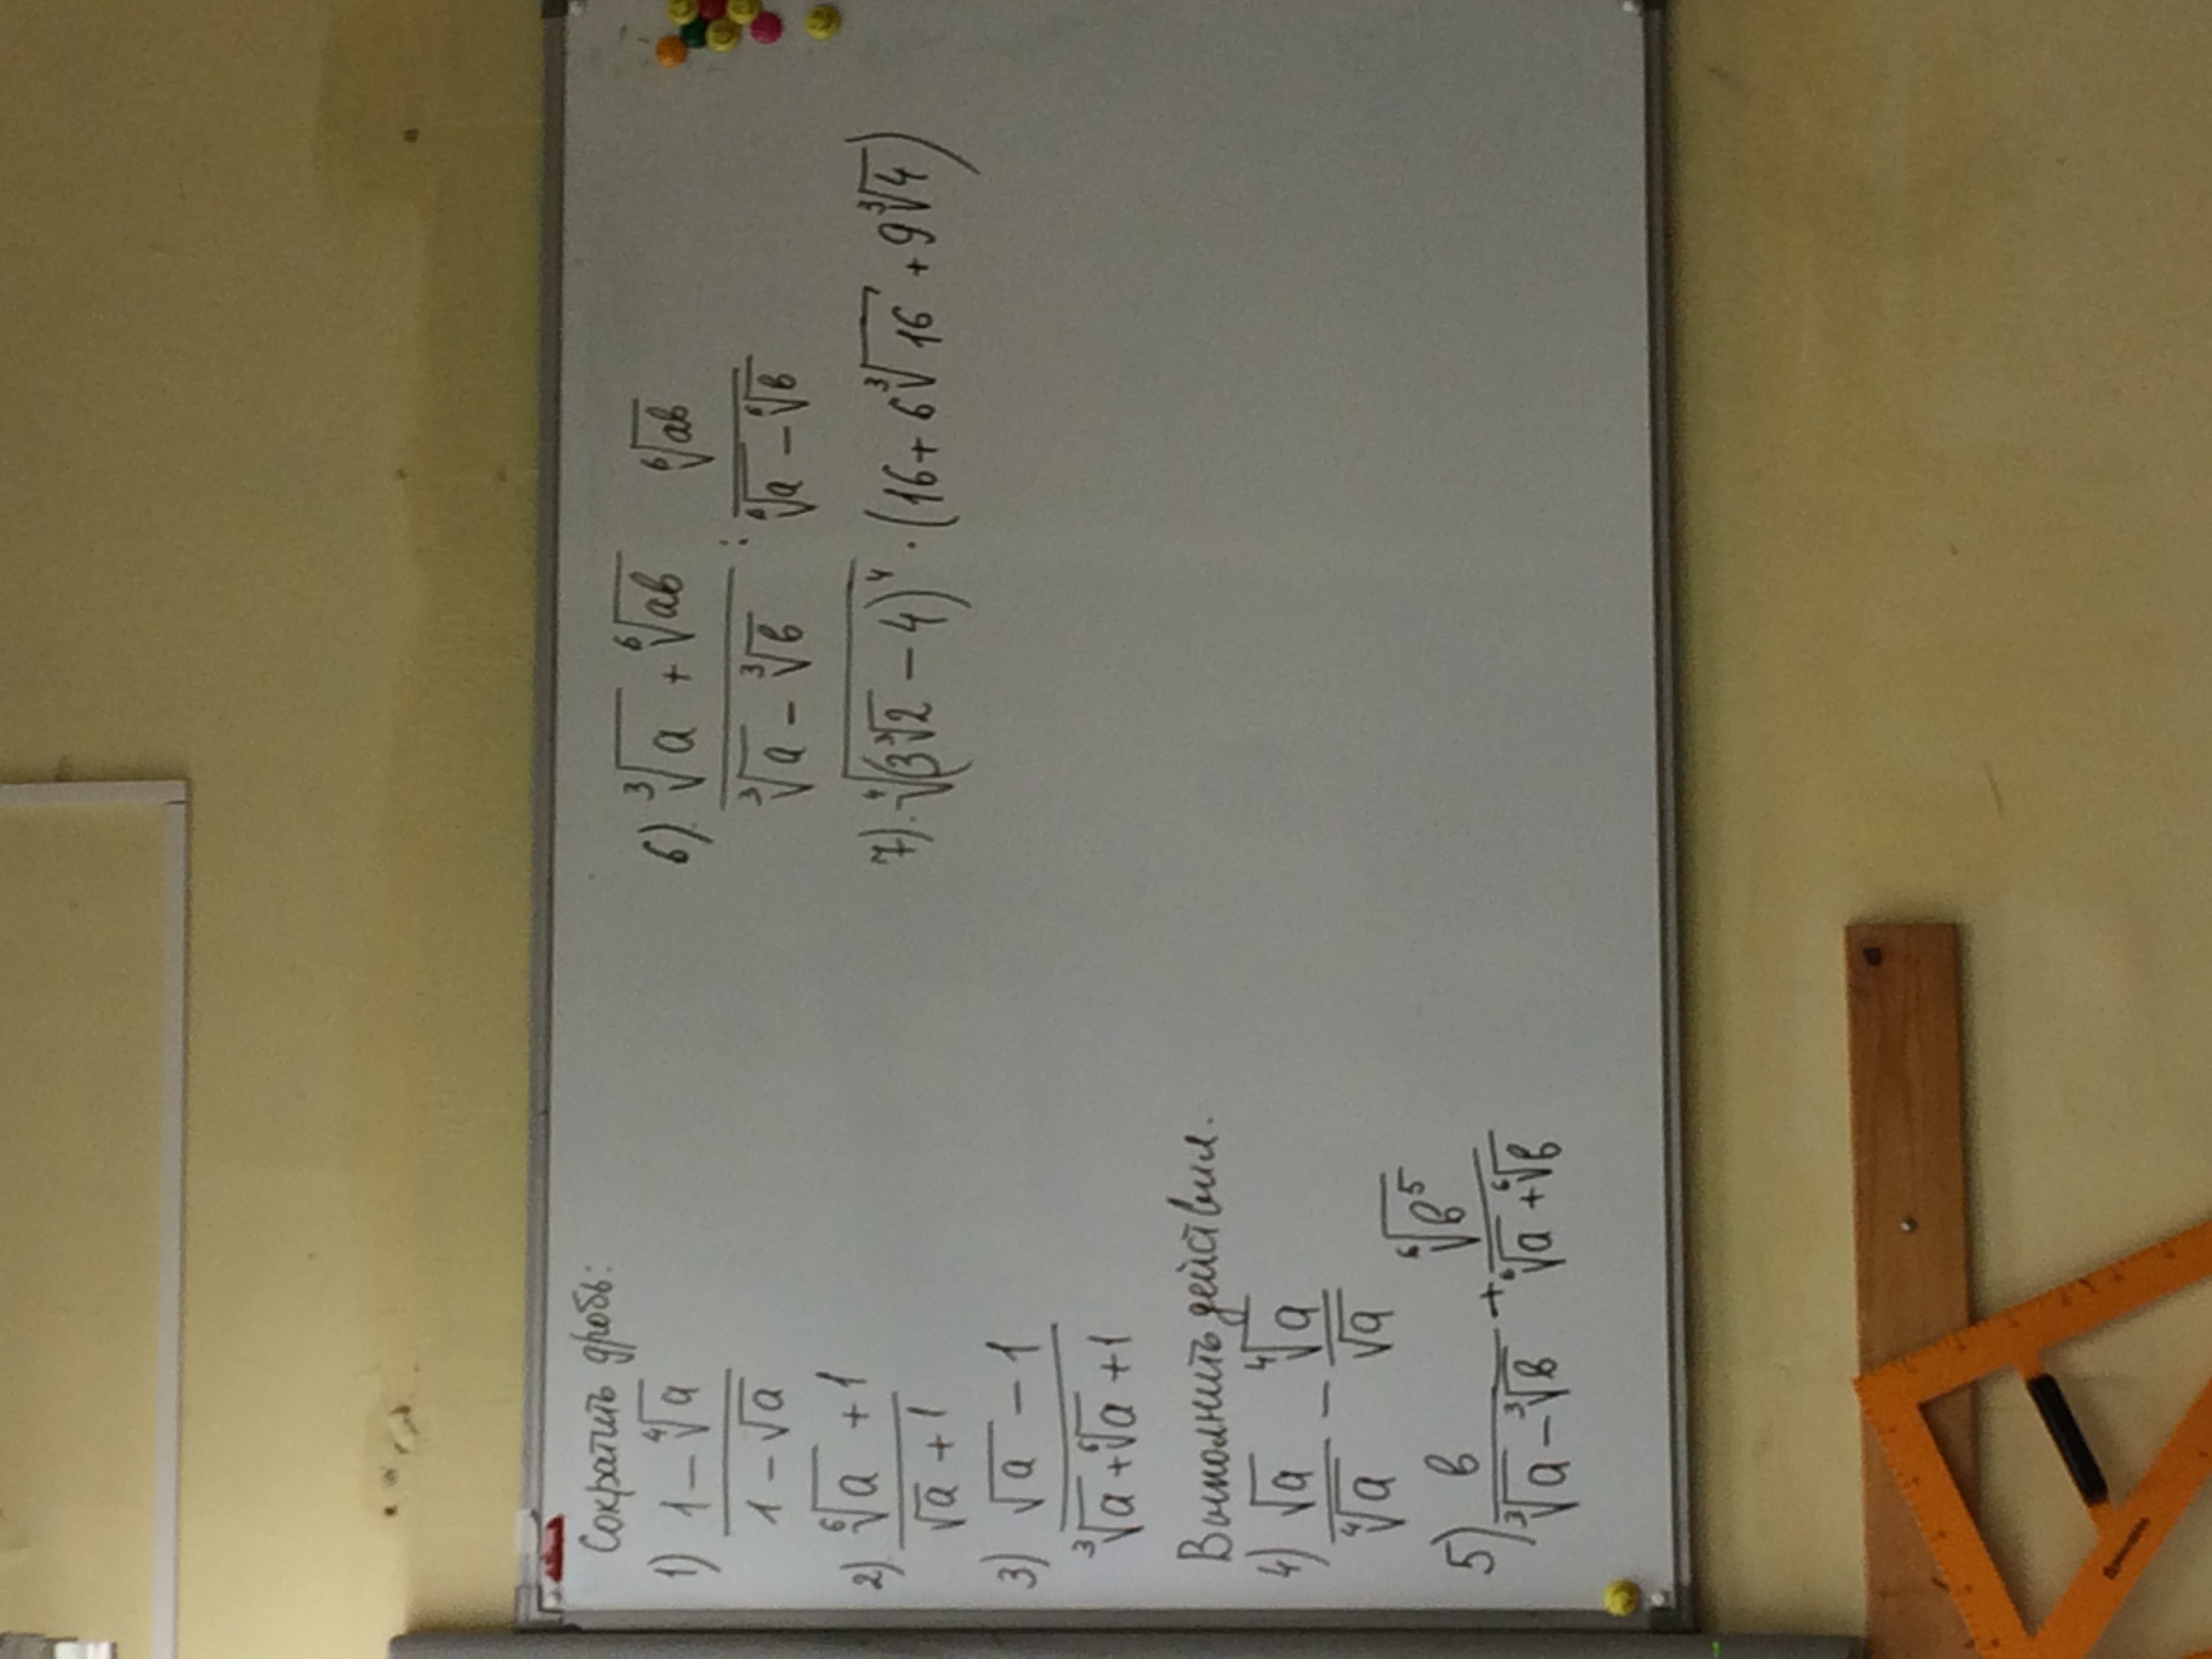 Сократить дробь:
1) (1 − ⁴√a) / (1 − √a)
2) (⁶√a + 1) / (√a + 1)
3) (√a − 1) / (³√a + ⁶√a + 1)
Выполнить действия.
4) √a / ⁴√a − ⁴√a / √a
5) в / (³√a − ³√в) + ⁶√в⁵ / (⁶√a + ⁶√в)
6) (³√a + ⁶√aв) / (³√a − ³√в) : ⁶√aв / (⁶√a − ⁶√в)
7) ⁴√(3³√2 − 4)⁴ · (16 + 6³√16 + 9³√4)